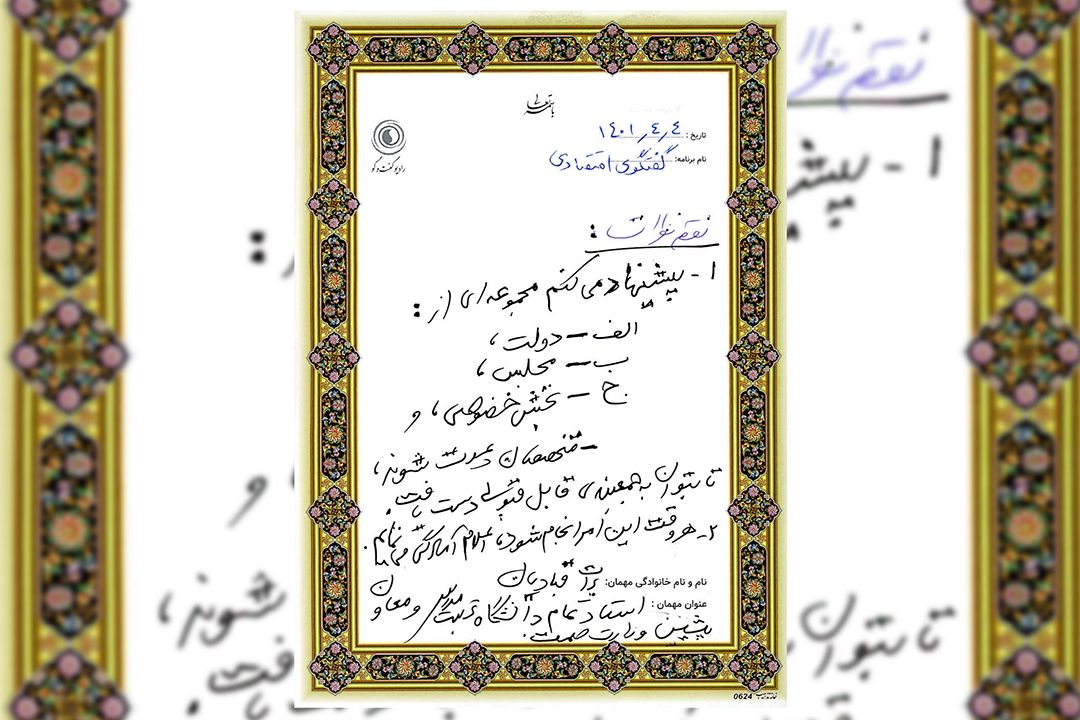 باسمه تعالی
رادیو گفت‌وگو
تاریخ: ۱۴۰۱٫۴٫۴
نام برنامه: گفتگوی اقتصادی
نقطه نظرات:
۱- پیشنهاد می کنم مجموعه ای از:
الف - دولت،
ب - مجلس،
ج - بخش خصوصی، و
- متخصصان دعوت شوند،
تا بتوان به جمعبندی قابل قبولی دست یافت.
۲- هر وقت این امر انجام شود، اعلام آمادگی می نمایم.
نام و نام خانوادگی مهمان: برات قبادیان
عنوان مهمان: استاد تمام دانشگاه تربیت مدرس و معاون
پیشین وزارت صمت.
0624